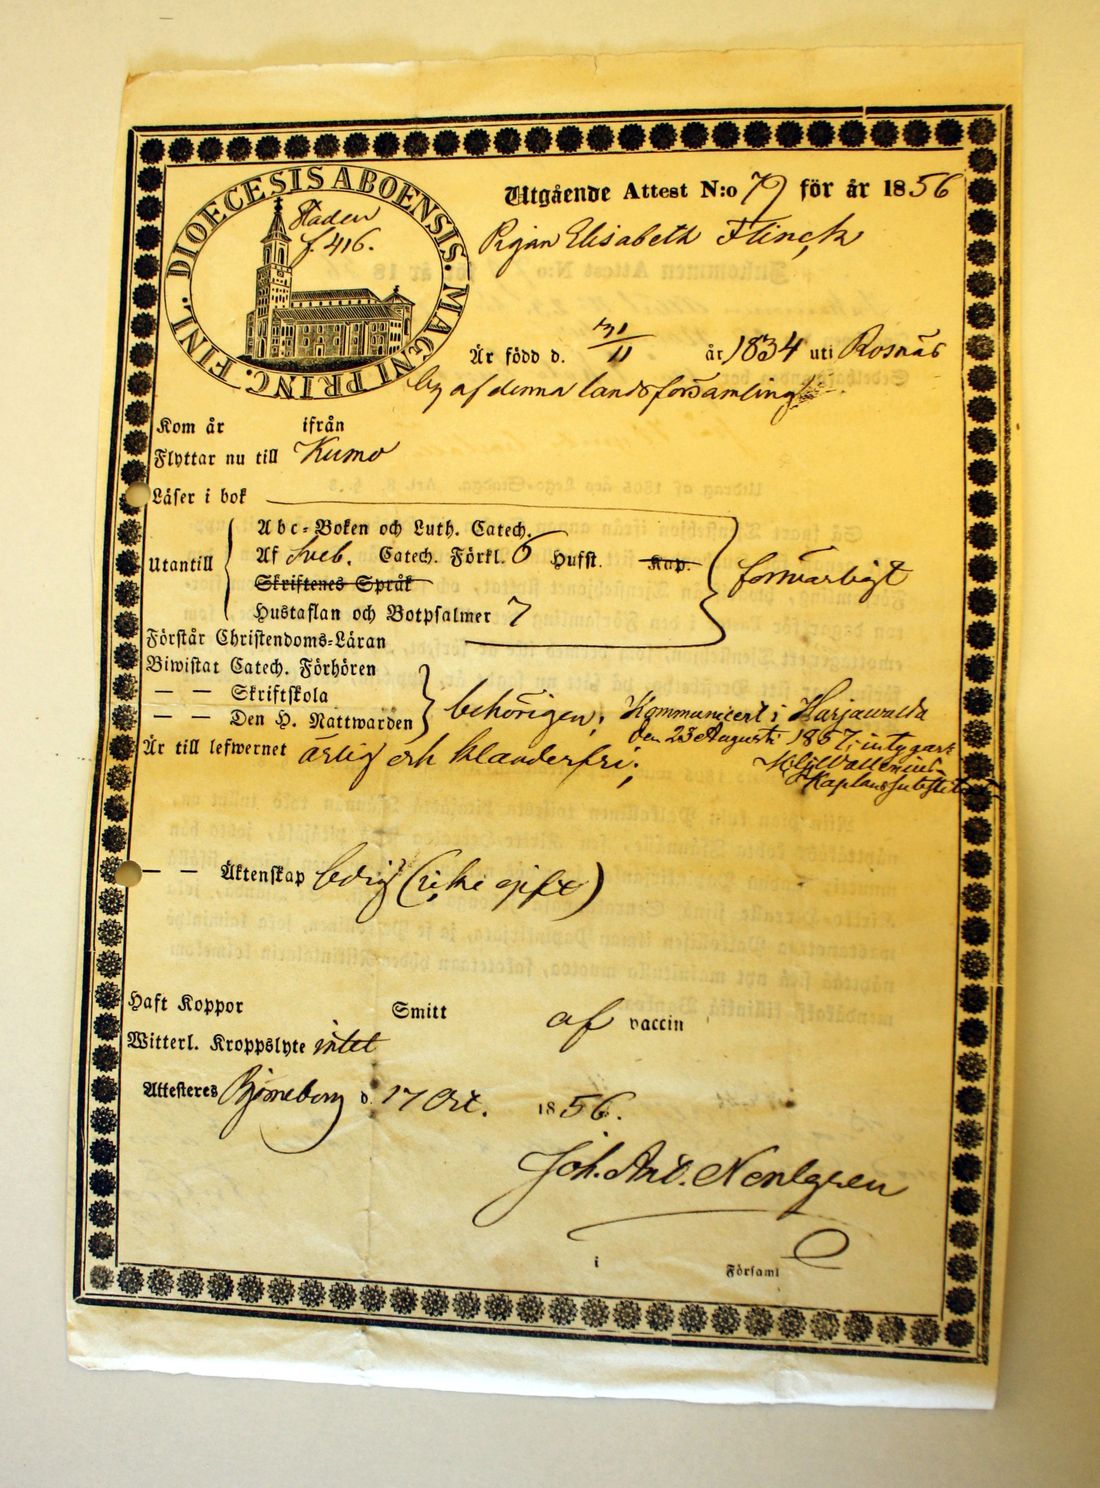 DIOECESIS ABOENSIS. MAGNI PRINC. FINL.
Staden
f. 416.
Utgående Attest N:o 79 för år 1856
Pigan Elisabeth Flinck
Är född d. 31/11 år 1834 uti Rosnäs
by af denna landsförsamling
Kom år ifrån
Flyttar nu till Kumo
Läser i bok
Abc-Boken och Luth. Catech.
Utantill Af Sveb. Catech. Förkl. 6 Hufst. Kap. försvarligt
Skriftenes Språk
Hustaflan och Botpsalmer 7
Förstår Christendoms-Läran
Biwistat Catech. Förhören
— — Skriftskola
— — Den H. Nattwarden behörigen; Kommunicert i Harjawalta
den 23 Augusti 1857, intygar
Är till lefwernet ärlig och klanderfri;
Kaplans Substitut
— — Äktenskap ledig (icke gift)
Haft Koppor Smitt af vaccin
Witterl. Kroppslyte intet
Attesteres Björneborg d. 17 Oct. 1856.
Joh. And.
i Församl